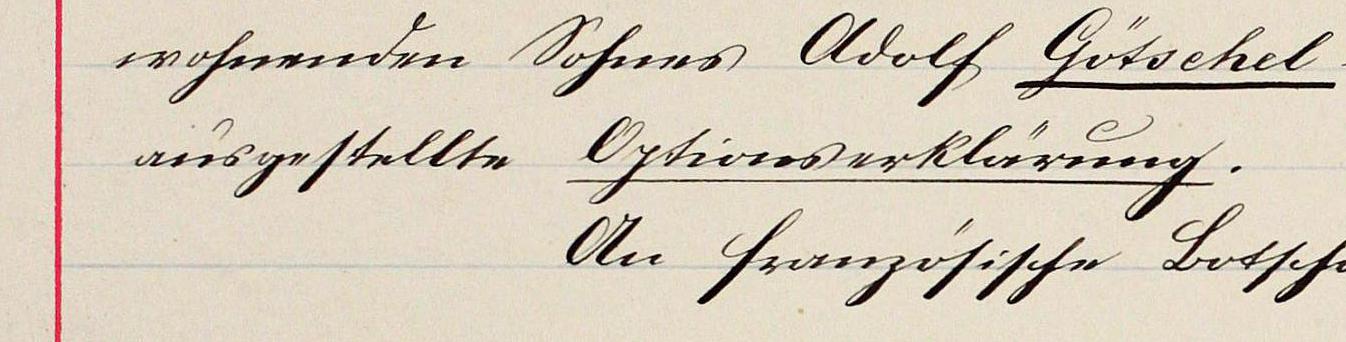 wohnenden Sohnes Adolf Götschel -
ausgestellte Optionserklärung.
An französische Botscha